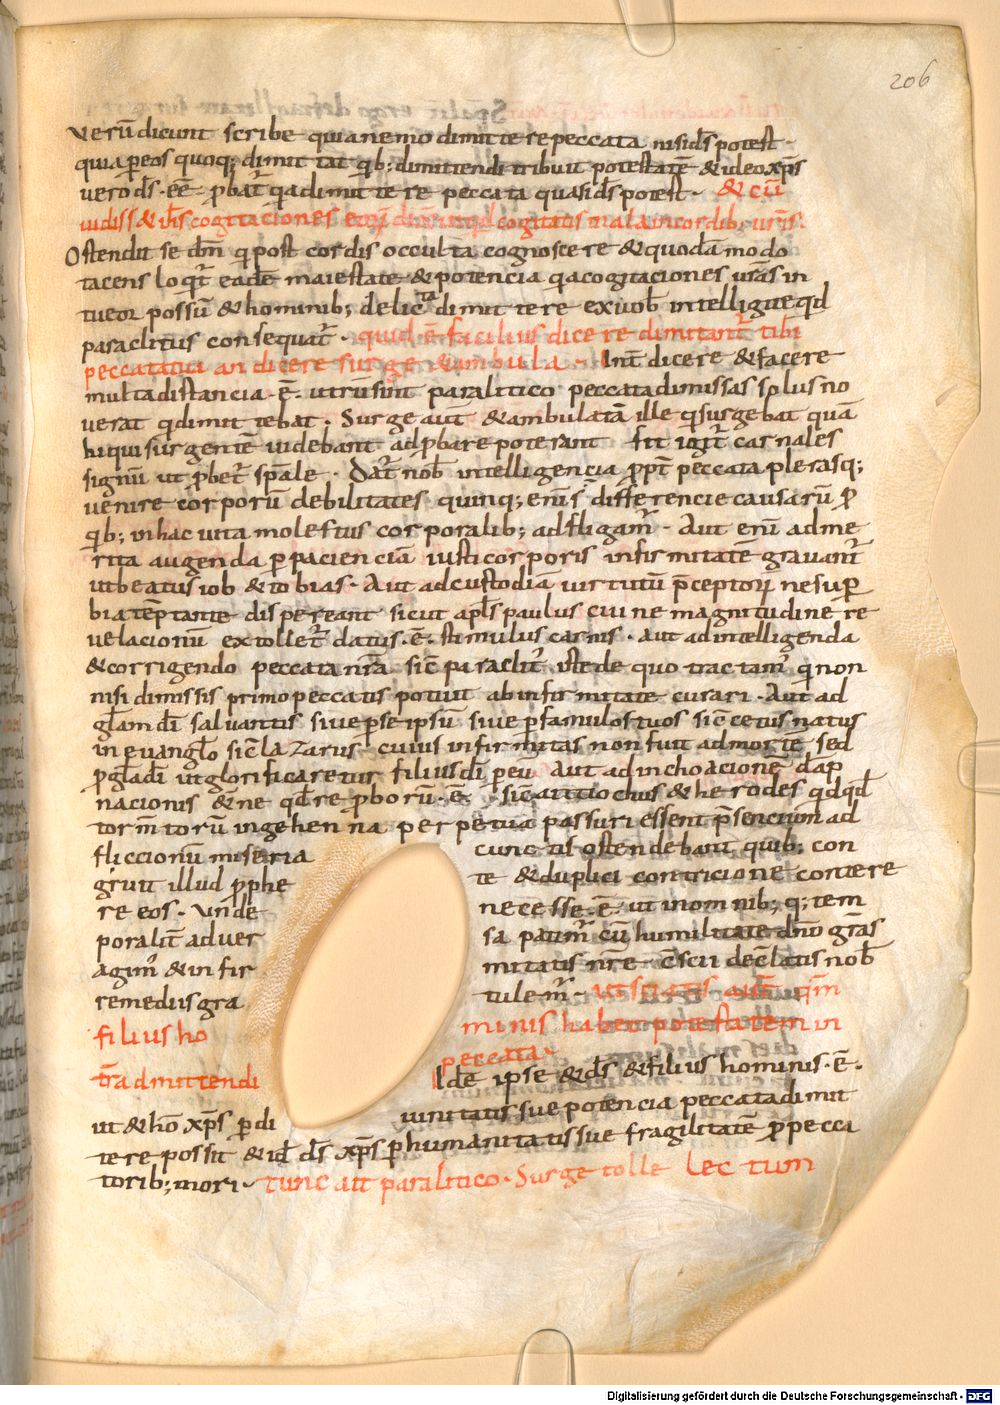 206
Verū dicunt scribe quia nemo dimittere peccata nisi d̄s potest ·
quia p̱ eos quoq; dimittat q̄ib; dimittendi tribuit potestatē & ideo xp̄s
vero d̄s · ēē · p̱bat̄ q̄a dimittere peccata quasi d̄s potest · & cū
uidiss& ih̄s cogitaciones eoꝝ dix̄ ut qd̄ cogitatis mala in cordib; ur̄is.
Ostendit se dm̄ q̄ potest cordis occulta cognoscere & quodā modo
tacens loq̄t̄ eadē maiestate & potencia q̄a cogitaciones ur̄as in
tueor possū & hominib; delicta dimittere ex uob̄ intelligite qd̄
paraclitus consequat̄ · quid ē facilius dicere dimitant̄ tibi
peccata tui an dicere surge & ambula · Int̄ dicere & facere
multa distancia · ē · utrū sint paralitico peccata dimissa solus no
verat q̄ dimittebat · Surge aut̄ & ambula tā ille q̄ surgebat quā
hi qui surgentē uidebant adp̱bare poterant fit igit̄ carnales
signū ut p̱bet̄ sp̄ale · Dat̄ nob̄ intelligencia p̱pt̄ peccata plerasq;
uenire corporū debilitates quinq; eni s̄ differencie causarū p̱
q̄ib; in hac uita molestiis corporalib; adfligam̄ · Aut enī ad me
rita augenda p̱ pacienciā iusti corporis infirmitatē gravant̄
ut beatus iob & tobias · Aut ad custodiā uirtutū p̄ceptoꝝ ne sup̱
bia tēptante dispereant sicut ap̄ls paulus cui ne magnitudine re
velacionū extollet̄ datus · ē · stimulus carnis · Aut ad intelligenda
& corrigendo peccata nr̄a sic̄ paraclit̄ iste de quo tractam̄ q̄ non
nisi dimissis primo peccatis potuit ab infirmitate curari · Aut ad
gl̄am dī salvantis sive p̱ se ipsū sive p̱ famulos tuos sic̄ cecus natus
in evanglo sic̄ lazarus cuius infirmitas non fuit ad mortē sed
p̱ gl̄a dī ut glorificaretur filius dī p̱ eū Aut ad inchoacionē dāp
nacionis &ne qd̄ re p̱borū · ē · sic̄ antiochus & herodes q̄d qd̄
torm̄torū in gehenna perpetua passuri essent p̄sencium ad
fliccionū miseria cunctis ostendebant quib; con
gruit illud p̱phe te & duplici contricione contere
re eos · Unde necesse · ē · ut in omnib; q; tem
poralit̄ ad ver sa patim̄ cū humilitate dn̄o grās
agim̄ & infir mitatis nr̄e c̄scii dec̄latis nob̄
remediis gra tulem̄ · ut sciatis aut̄ qm̄
filius ho minis habet potestatem in
tr̄a dmittendi peccata ·
Idē ipse & d̄s & filius hominis · ē ·
ut & hō xp̄s p̱ di uinitatis sue potencia peccata dimit
tere possit & id̄ d̄s xp̄s p̱ humanitatis sue fragilitatē p̱ pecca
torib; mori · tunc ait paralitico · Surge tolle lectum
Digitalisierung gefördert durch die Deutsche Forschungsgemeinschaft - DFG